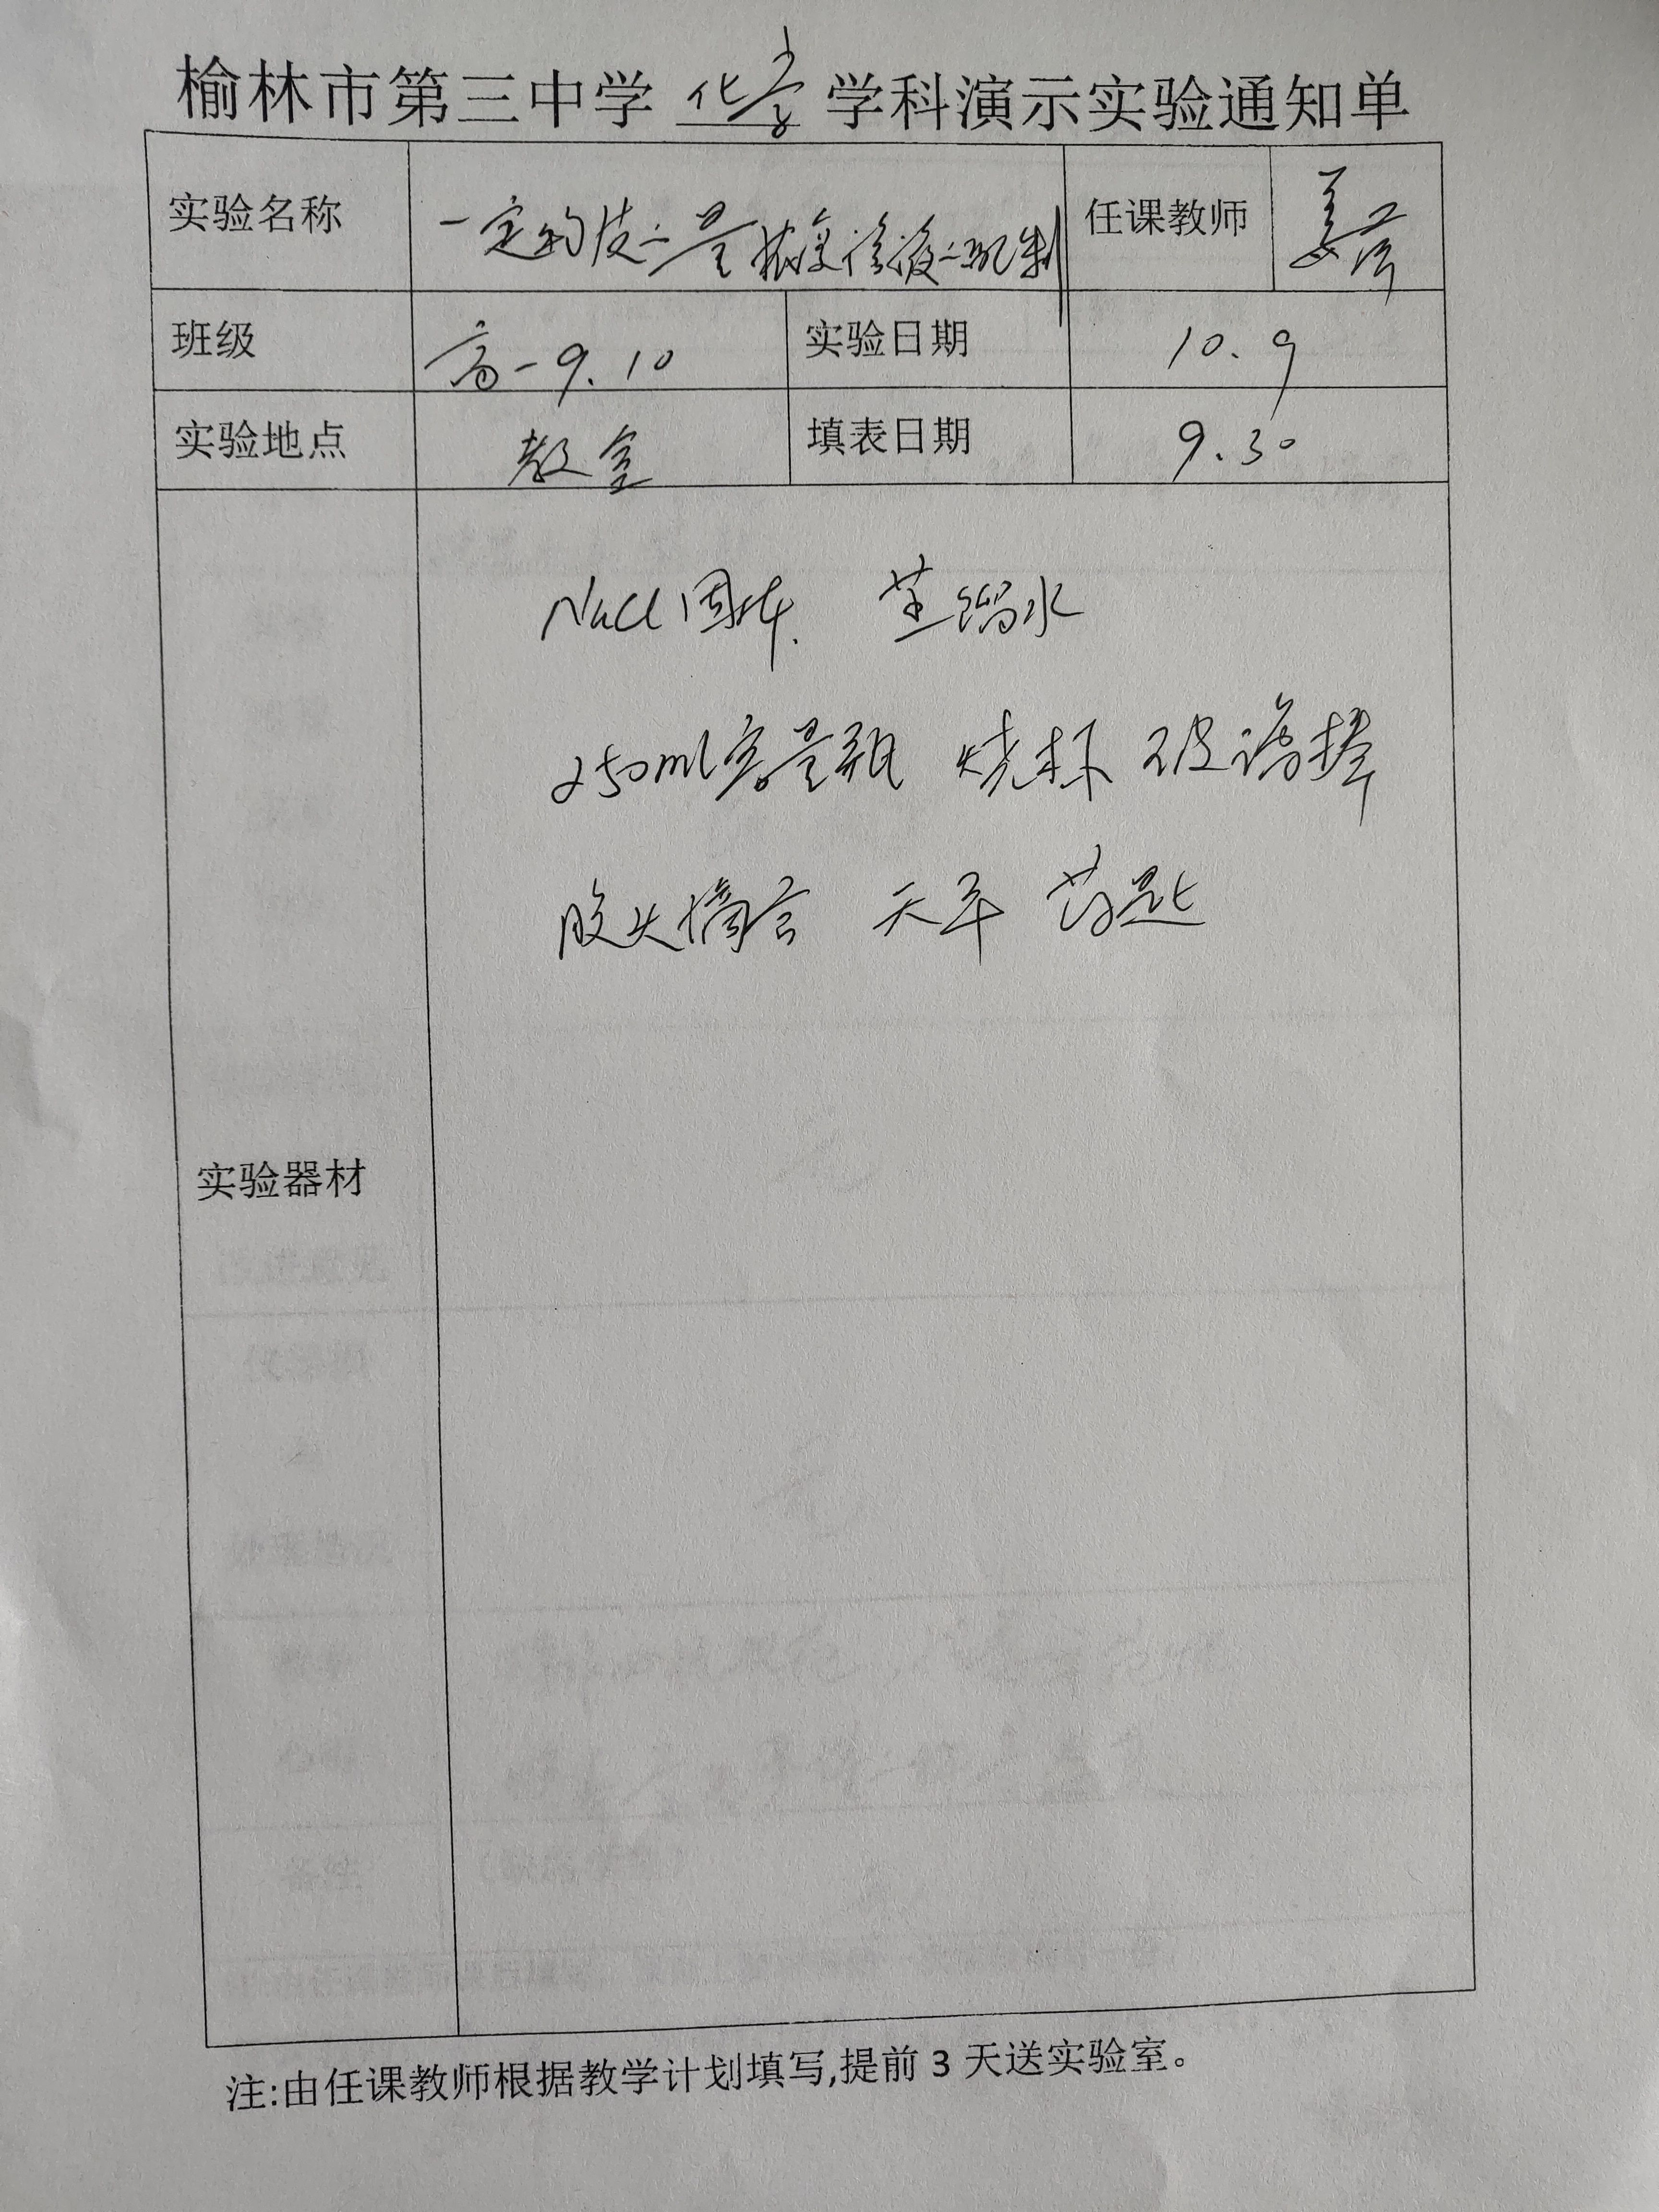 榆林市第三中学 化学 学科演示实验通知单
实验名称 一定物质之量浓度溶液之配制 任课教师 姜萍
班级 高一9.10 实验日期 10.9
实验地点 教室 填表日期 9.30
NaCl固体. 蒸馏水
250ml容量瓶 烧杯 玻璃棒
胶头滴管 天平 药匙
实验器材
注:由任课教师根据教学计划填写,提前3天送实验室。